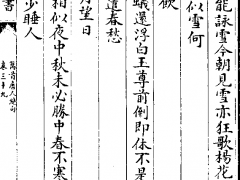 能詠雪今朝見雪亦狂歌楊花
似雪何
飲
蟻還浮白玉尊前倒即休不是
遣春愁
月望日
相似夜中秋未必勝中春不寒
少睡人
萬首唐人絕句
卷三十九
書